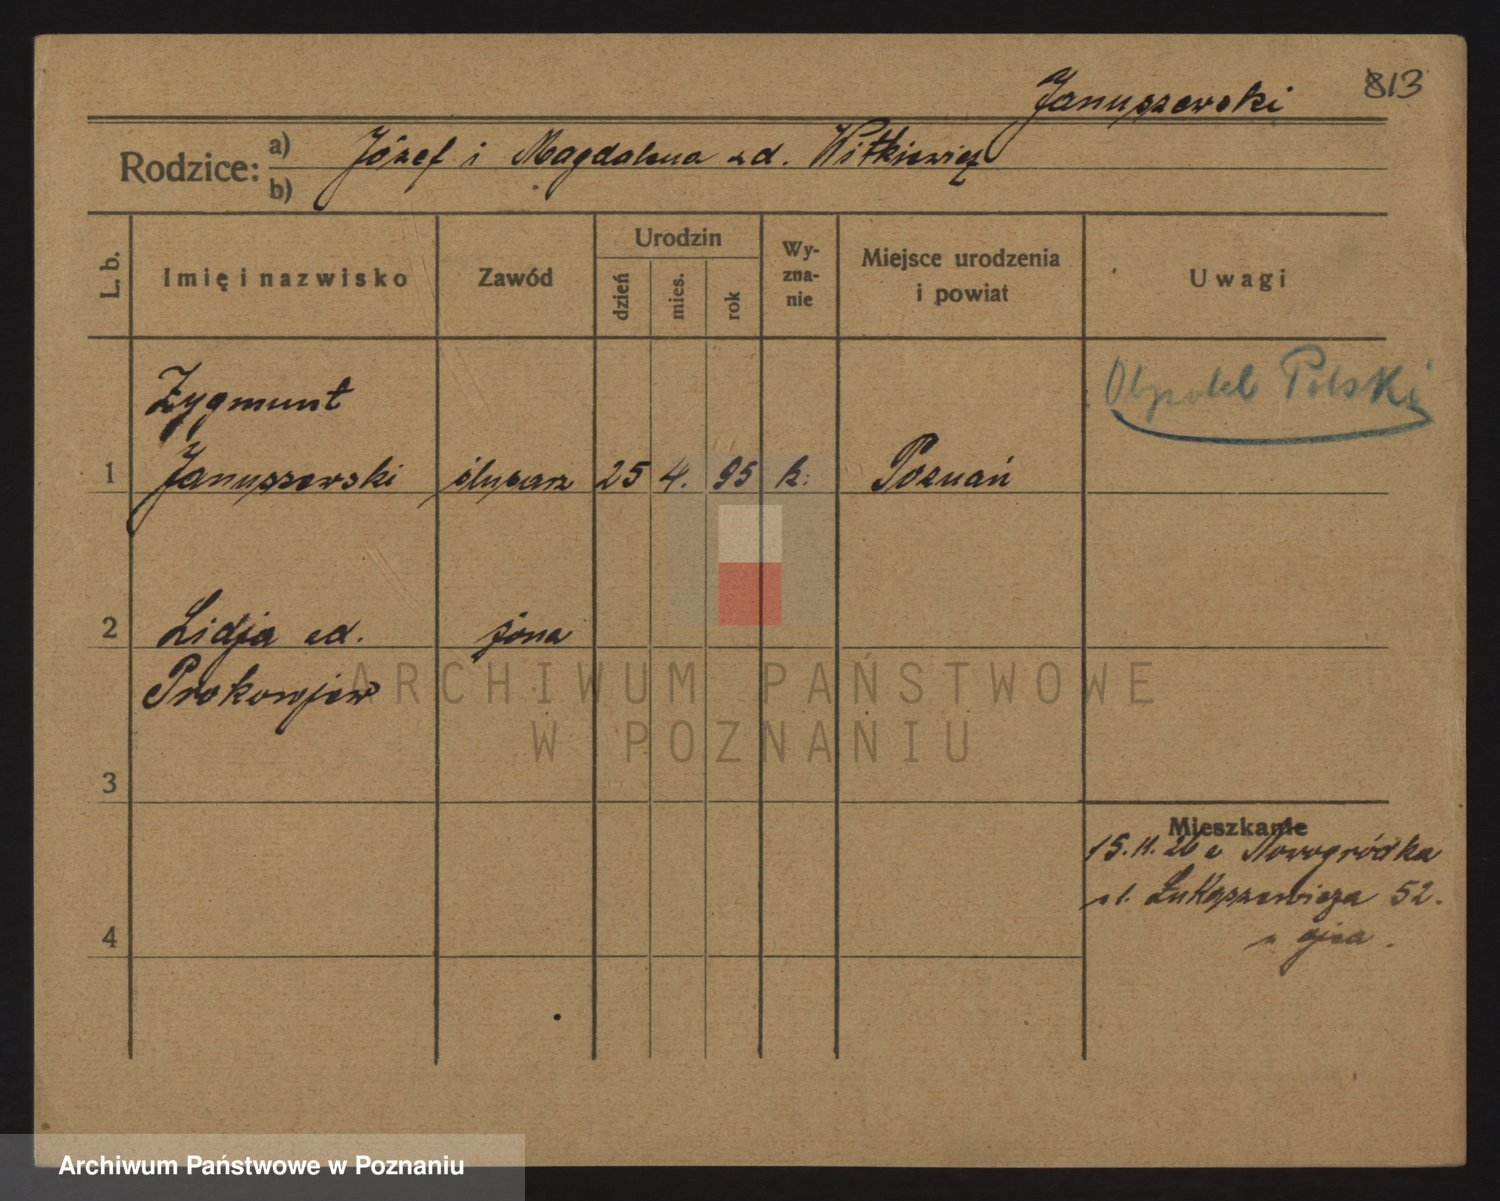 Januszewski 813
Rodzice: a) Józef i Magdalena zd. Witkiewicz
b)
L. b.
Imię i nazwisko
Zawód
Urodzin
dzień
mies.
rok
Wy-
zna-
nie
Miejsce urodzenia
i powiat
Uwagi
Zygmunt
Obywatel Polski
1 Januszewski ślusarz 25 4. 95 k. Poznań
2 Lidja zd. żona
Prokowjew
ARCHIWUM PAŃSTWOWE
W POZNANIU
3
Mieszkanie
15.11.26 z Nowogródka
ul. Łukaszewicza 52.
u ojca.
4
Archiwum Państwowe w Poznaniu